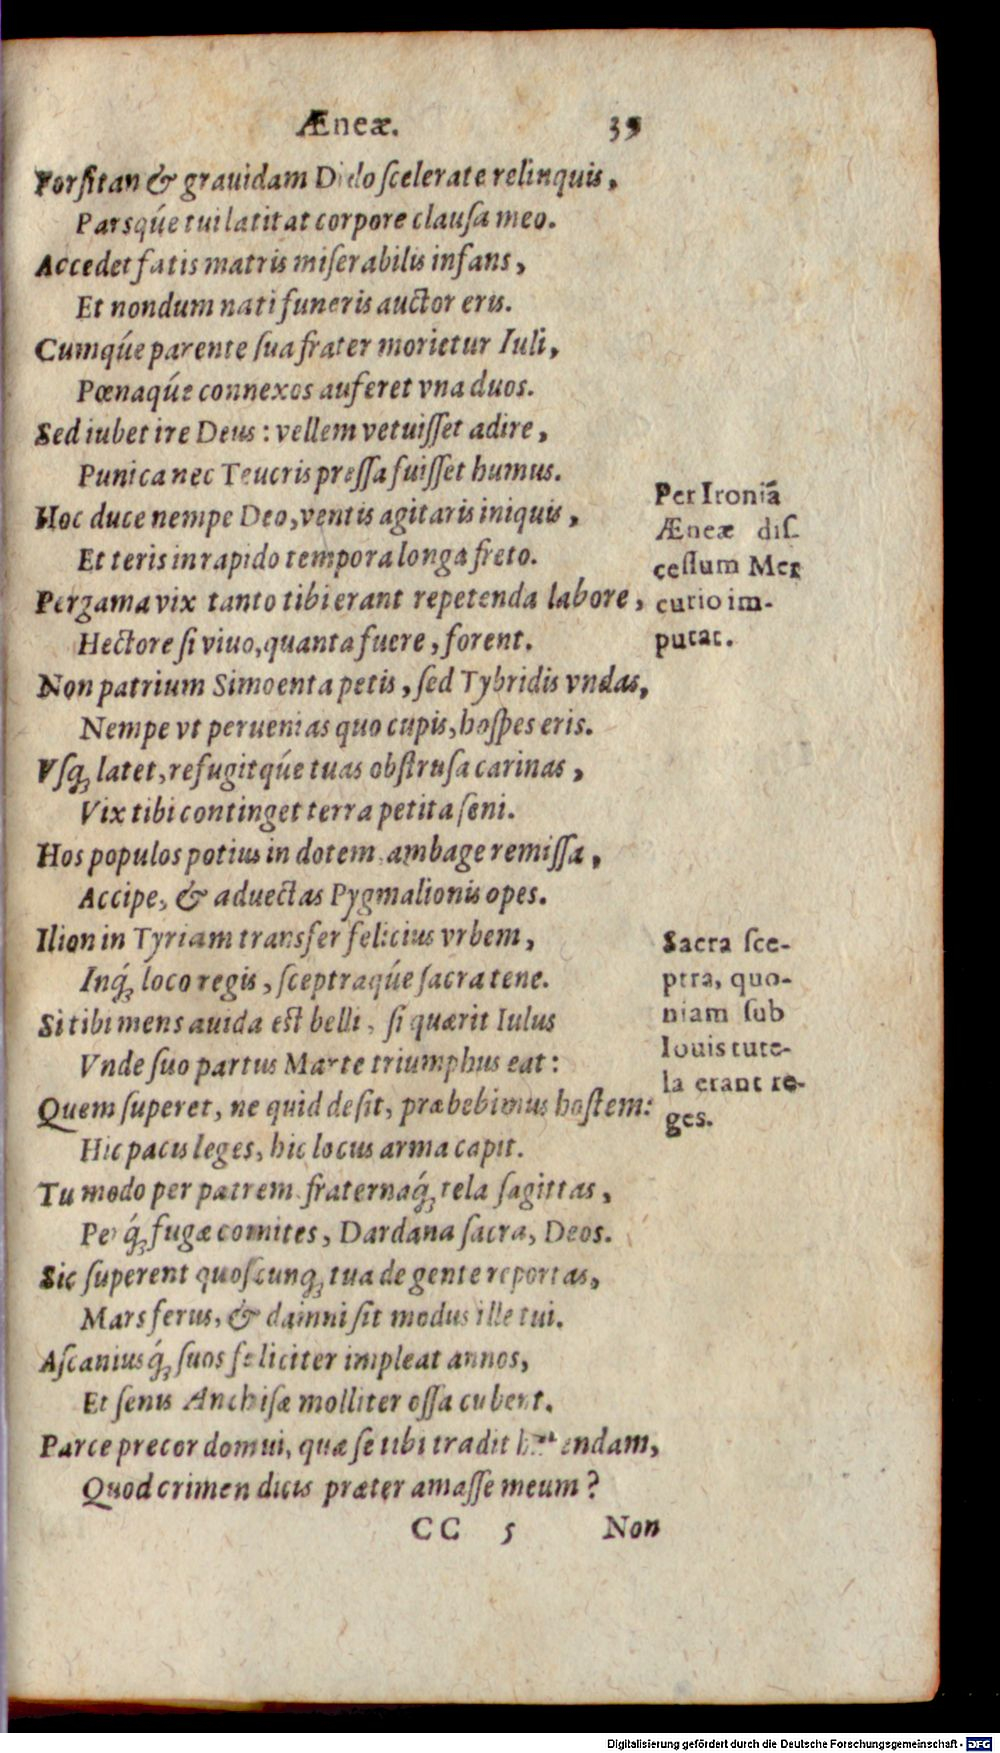 Æneæ. 39
Forſitan & grauidam Dido ſcelerate relinquis,
Parsqúe tui latitat corpore clauſa meo.
Accedet fatis matris miſerabilis infans,
Et nondum nati funeris auctor eris.
Cumqúe parente ſua frater morietur Iuli,
Pœnaqúe connexos auferet vna duos.
Sed iubet ire Deus: vellem vetuiſſet adire,
Punica nec Teucris preſſa fuiſſet humus.
Hoc duce nempe Deo, ventis agitaris iniquis,
Et teris in rapido tempora longa freto.
Pergama vix tanto tibi erant repetenda labore,
Hectore ſi viuo, quanta fuere, forent.
Non patrium Simoenta petis, ſed Tybridis vndas,
Nempe vt peruenias quo cupis, hoſpes eris.
Vſq; latet, refugitqúe tuas obſtruſa carinas,
Vix tibi continget terra petita ſeni.
Hos populos potius in dotem ambage remiſſa,
Accipe, & aduectas Pygmalionis opes.
Ilion in Tyriam transfer felicius vrbem,
Inq́; loco regis, ſceptraqúe ſacra tene.
Si tibi mens auida est belli, ſi quærit Iulus
Vnde ſuo partus Marte triumphus eat:
Quem ſuperet, ne quid deſit, præbebimus hoſtem:
Hic pacis leges, hic locus arma capit.
Tu modo per patrem fraternaq́; tela ſagittas,
Perq́; fugæ comites, Dardana ſacra, Deos.
Sic ſuperent quoſcunq; tua de gente reportas,
Mars ferus, & damni ſit modus ille tui.
Aſcaniusq́; ſuos feliciter impleat annos,
Et ſenis Anchiſæ molliter oſſa cubent.
Parce precor domui, quæ ſe tibi tradit endam,
Quod crimen dicis præter amaſſe meum?
CC 5 Non
Per Ironiã
Æneæ diſ-
ceſſum Mer
curio im-
putat.
Sacra ſce-
ptra, quo-
niam ſub
Iouis tute-
la erant re-
ges.
Digitalisierung gefördert durch die Deutsche Forschungsgemeinschaft - DFG